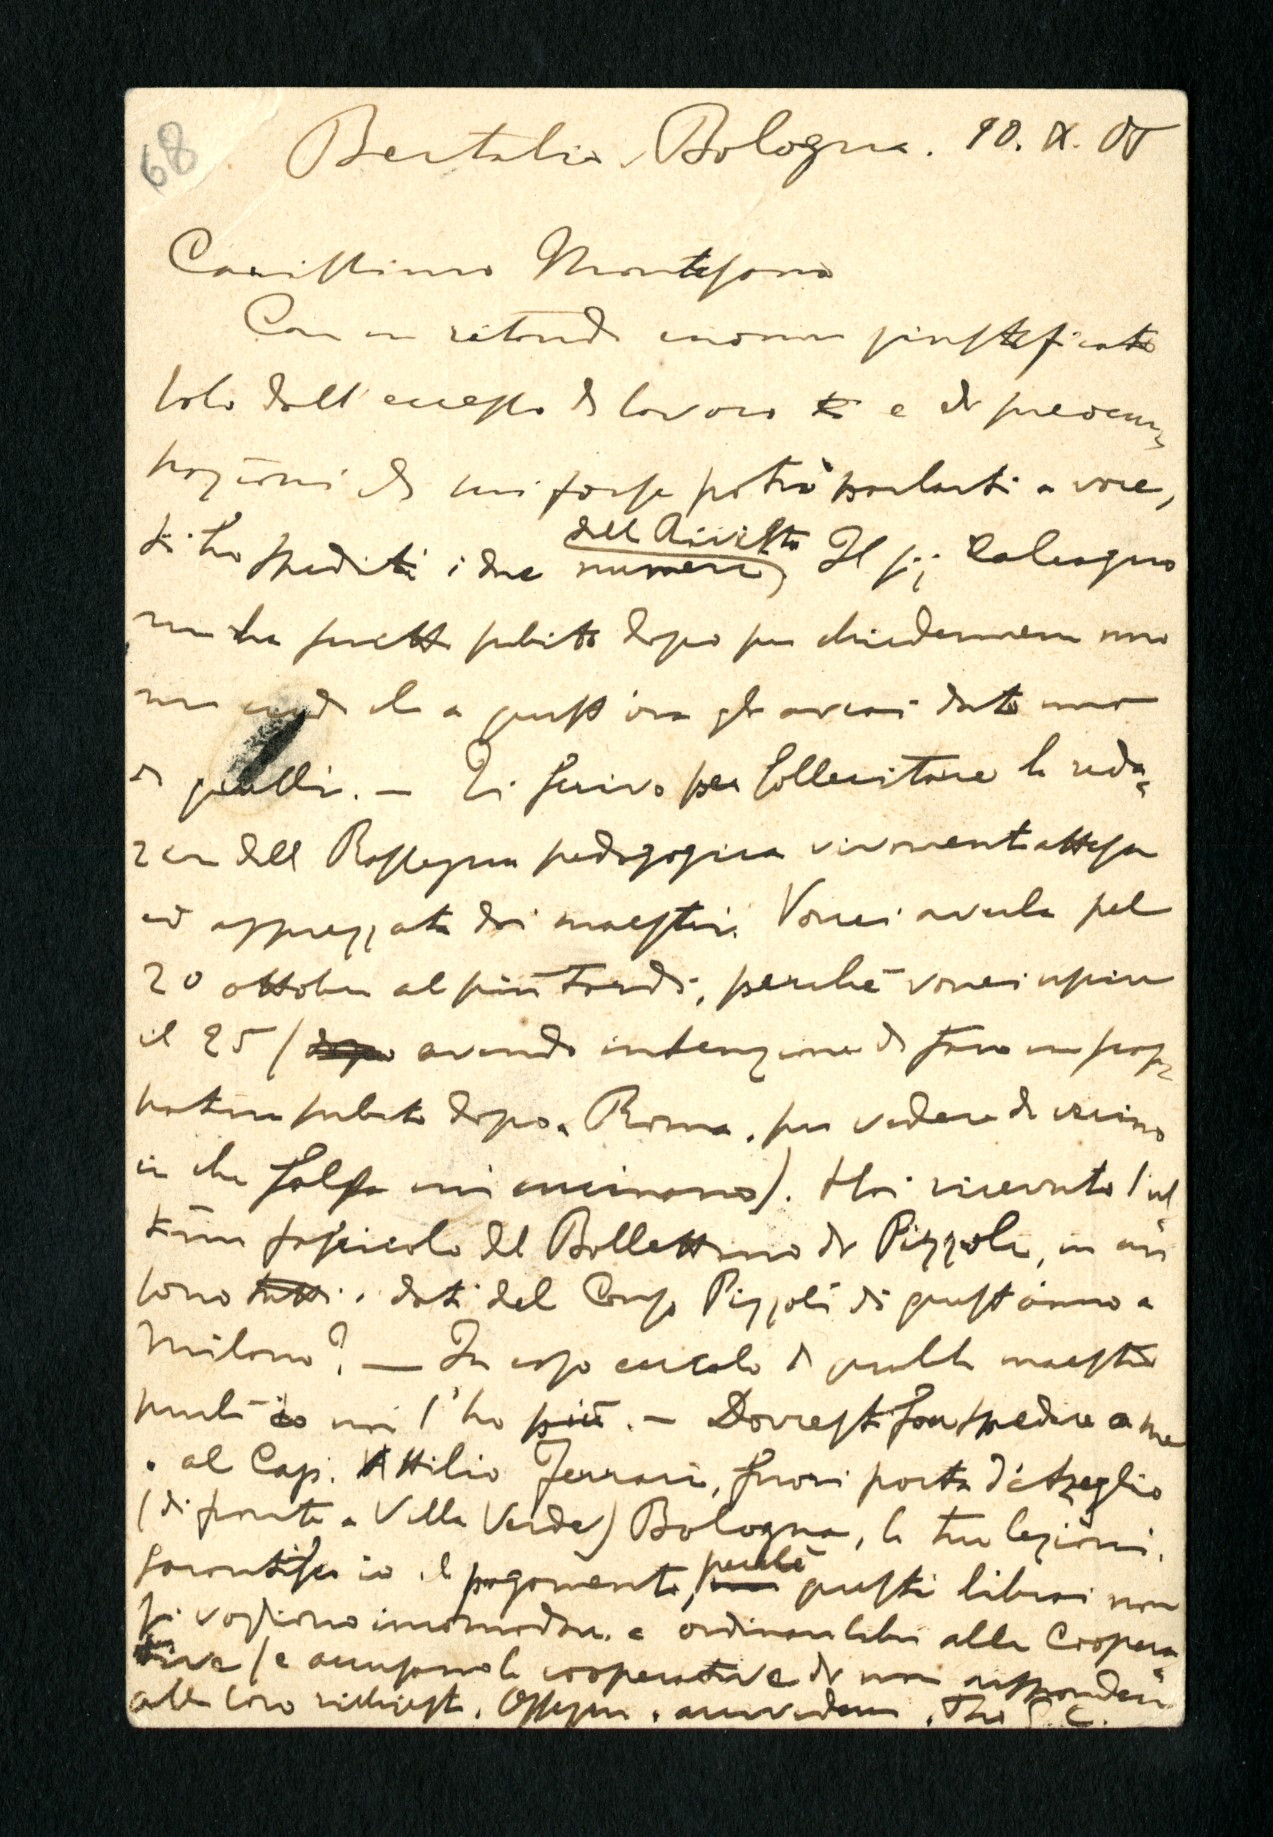 68
Bertalia, Bologna. 10. IX. 05
Carissimo Montesano
Con un ritardo enorme giustificato
solo dall'eccesso di lavoro e di preoccu=
pazioni di cui forse potrò parlarti a voce,
ti ho spedito i due numeri della Rivista. Il
mi ha scritto subito dopo per chiedermene uno
ma che a quest'ora gli avrai dato uno
di quelli. — Ti scrivo per sollecitare la reda=
zione della Rassegna pedagogica vivamente attesa
ed apprezzata dai maestri. Vorrei averla pel
20 ottobre al più tardi, perchè vorrei uscire
il 25 (dopo avendo intenzione di fare una scap=
patina subito dopo a Roma, per vedere da vicino
in che salsa mi cucinano). Hai ricevuto l'ul=
timo fascicolo del Bollettino di Pizzoli, in cui
sono tutti i dati del Corso Pizzoli di quest'anno a
Milano? — In caso cercalo di quelli maestri
perchè io non l'ho più. — Dovresti far spedire a me
o al Cap. Attilio Ferrari, fuori porta d'Azeglio
(di fronte a Villa Verde) Bologna, le tue lezioni.
Garantisco io il pagamento, perchè questi librai non
si vogliono incomodare a ordinare libri alla Coopera=
tiva (e accusano la cooperativa di non rispondere
alle loro richieste. Ossequi e arrivederci. Tuo G. C.